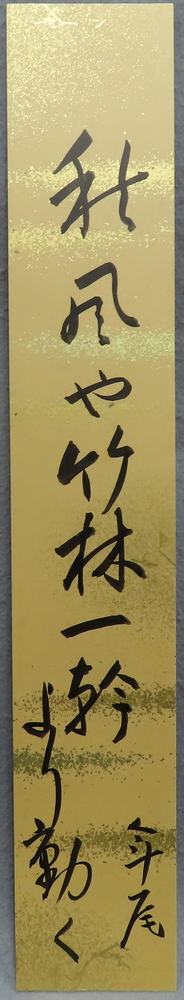 秋風や竹林一幹
より動く
年尾